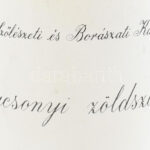 zőlészeti és Borászati K
csonyi zöldsz